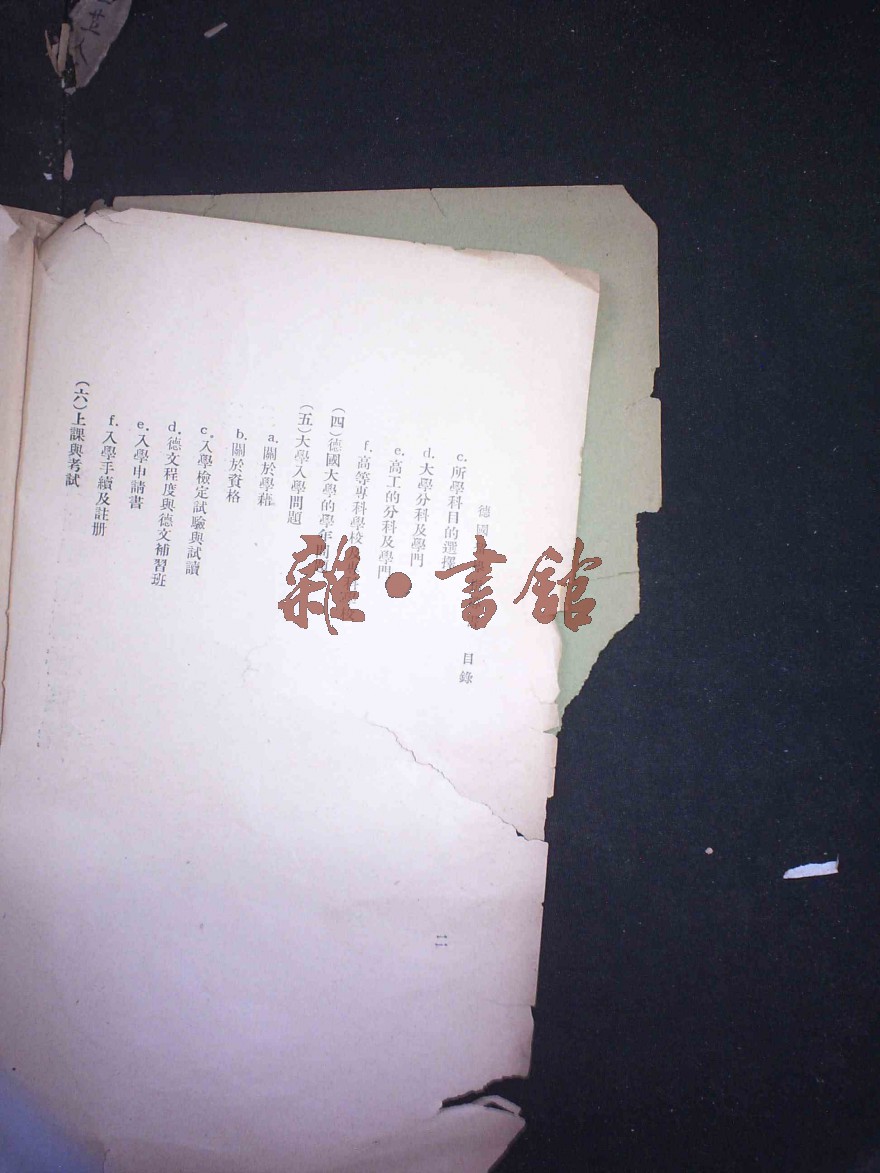 德國 目錄
c.所學科目的選擇
d.大學分科及學門
e.高工的分科及學門
f.高等專科學校
(四)德國大學的學年
(五)大學入學問題
a.關於學籍
b.關於資格
c.入學檢定試驗與試讀
d.德文程度與德文補習班
e.入學申請書
f.入學手續及註册
(六)上課與考試
二
雜•書館